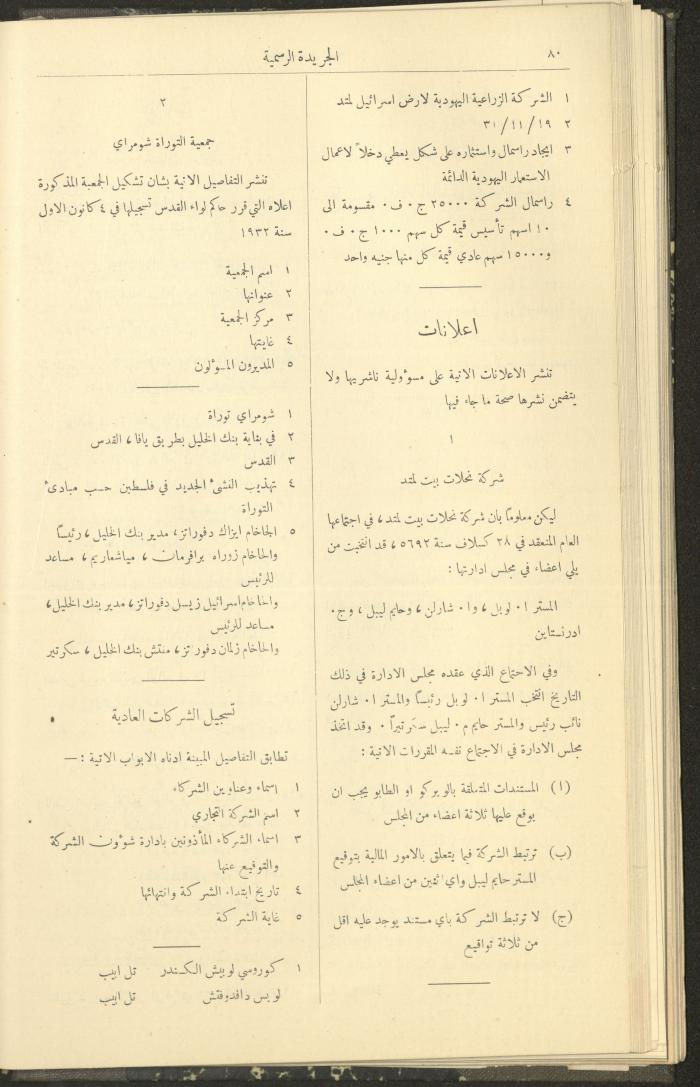 ٨٠
الجريدة الرسمية
١ الشركة الزراعية اليهودية لارض اسرائيل لمتد
٢ ١٩/١١/٣١
٣ ايجاد راسمال واستثماره على شكل يعطي دخلاً لاعمال
الاستعمار اليهودية الدائمة
٤ راسمال الشركة ٢٥٠٠٠ ج٠ ف٠ مقسومة الى
١٠ اسهم تأسيس قيمة كل سهم ١٠٠٠ ج٠ ف٠
و١٥٠٠٠ سهم عادي قيمة كل منها جنيه واحد
اعلانات
تنشر الاعلانات الاتية على مسوؤلية ناشريها ولا
يتضمن نشرها صحة ما جاء فيها
١
شركة نحلات بيت لمتد
ليكن معلوماً بان شركة نحلات بيت لمتد، في اجتماعها
العام المنعقد في ٢٨ كسلاف سنة ٥٦٩٢، قد انتخبت من
يلي اعضاء في مجلس ادارتها :
المستر ا٠ لوبل، وا٠ شارلن، وحايم ليبل، وج٠
ادرنستاين
وفي الاجتماع الذي عقده مجلس الادارة في ذلك
التاريخ انتخب المستر ا٠ لوبل رئيساً والمستر ا٠ شارلن
نائب رئيس والمستر حايم م٠ ليبل سكرتيراً٠ وقد اتخذ
مجلس الادارة في الاجتماع نفسه المقررات الاتية :
(ا) المستندات المتعلقة بالويركو او الطابو يجب ان
يوقع عليها ثلاثة اعضاء من المجلس
(ب) ترتبط الشركة فيما يتعلق بالامور المالية بتوقيع
المستر حايم ليبل واي اثنين من اعضاء المجلس
(ج) لا ترتبط الشركة باي مستند يوجد عليه اقل
من ثلاثة تواقيع
٢
جمعية التوراة شومراي
تنشر التفاصيل الاتية بشان تشكيل الجمعية المذكورة
اعلاه التي قرر حاكم لواء القدس تسجيلها في ٤ كانون الاول
سنة ١٩٣٢
١ اسم الجمعية
٢ عنوانها
٣ مركز الجمعية
٤ غايتها
٥ المديرون المسوؤلون
١ شومراي توراة
٢ في بناية بنك الخليل بطريق يافا، القدس
٣ القدس
٤ تهذيب النشئ الجديد في فلسطين حسب مبادئ
التوراة
٥ الحاخام ايزاك دفوراتز، مدير بنك الخليل، رئيساً
والحاخام زوراه برافرمان، مياشماريم، مساعد
للرئيس
والحاخام اسرائيل زيسل دفوراتز، مدير بنك الخليل،
مساعد للرئيس
والحاخام زلمان دفوراتز، مفتش بنك الخليل، سكرتير
تسجيل الشركات العادية
تطابق التفاصيل المبينة ادناه الابواب الاتية :—
١ اسماء وعناوين الشركاء
٢ اسم الشركة التجاري
٣ اسماء الشركاء المأذونين بادارة شوؤون الشركة
والتوقيع عنها
٤ تاريخ ابتداء الشركة وانتهائها
٥ غاية الشركة
١ كوروسي لويش الكسندر تل ابيب
لويس دافدوفتش تل ابيب